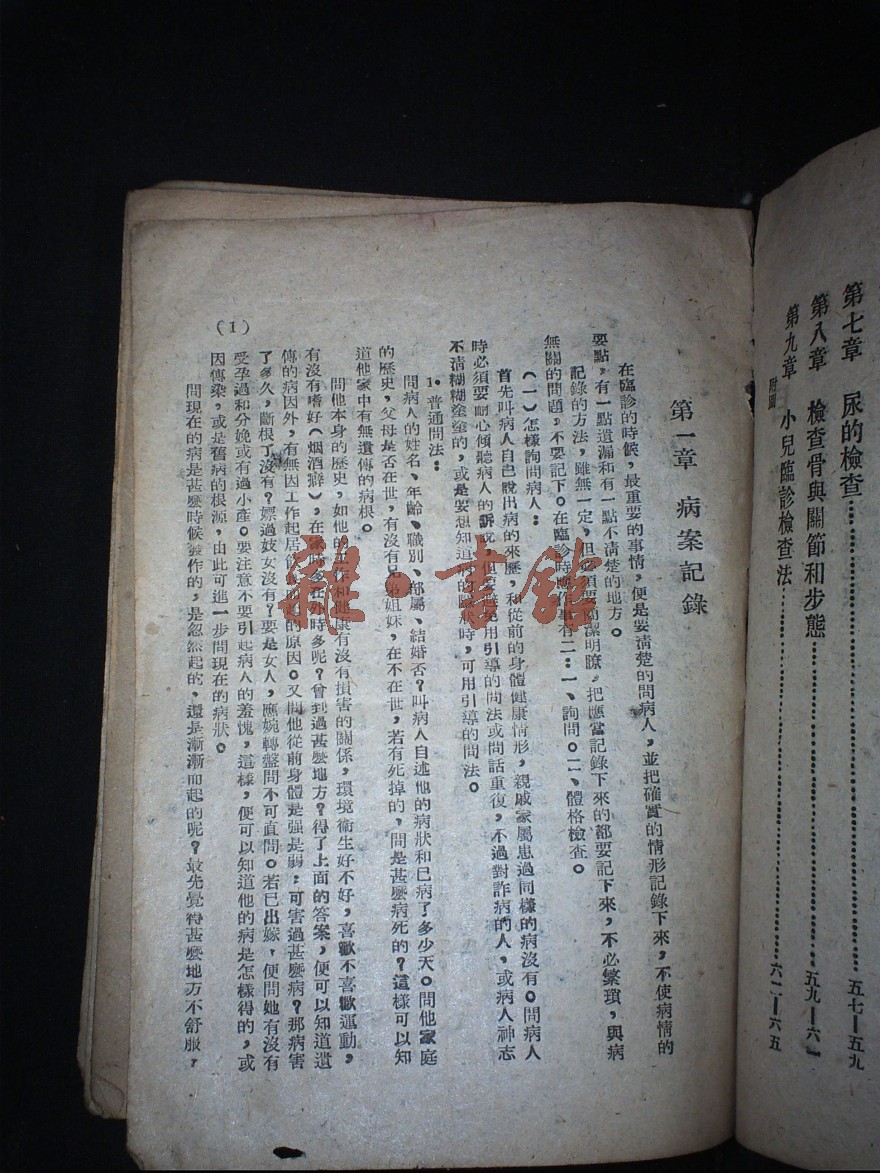 第七章 尿的檢查……………………五七—五九
第八章 檢查骨與關節和步態……………………五九—六一
第九章 小兒臨診檢查法……………………六二—六五
附圖
第一章 病案記錄
在臨診的時候，最重要的事情，便是要清楚的問病人，並把確實的情形記錄下來，不使病情的
要點，有一點遺漏和有一點不清楚的地方。
記錄的方法，雖無一定，但必須要簡潔明瞭，把應當記錄下來的都要記下來，不必繁瑣，與病
無關的問題，不要記下。在臨診時應作事有二：一、詢問。二、體格檢查。
（一）怎樣詢問病人：
首先叫病人自己說出病的來歷，和從前的身體健康情形，親戚家屬患過同樣的病沒有。問病人
時必須要耐心傾聽病人的訴說，但要避免用引導的問法或問話重復，不過對詐病的人，或病人神志
不清糊糊塗塗的，或是要想知道特的症狀時，可用引導的問法。
1．普通問法：
問病人的姓名、年齡、職別、部屬、結婚否？叫病人自述他的病狀和已病了多少天。問他家庭
的歷史，父母是否在世，有沒有兄弟姐妹，在不在世，若有死掉的，問是甚麼病死的？這樣可以知
道他家中有無遺傳的病根。
問他本身的歷史，如他的工作和健康有沒有損害的關係，環境衛生好不好，喜歡不喜歡運動，
有沒有嗜好（烟酒癖），在家時多在外時多呢？曾到過甚麼地方？得了上面的答案，便可以知道遺
傳的病因外，有無因工作起居而起的原因。又問他從前身體是强是弱：可害過甚麼病？那病害
了多久，斷根了沒有？嫖過妓女沒有？要是女人，應婉轉盤問不可直問。若已出嫁，便問她有沒有
受孕過和分娩或有過小產。要注意不要引起病人的羞愧，這樣，便可以知道他的病是怎樣得的，或
因傳染，或是舊病的根源，由此可進一步問現在的病狀。
問現在的病是甚麼時候發作的，是忽然起的，還是漸漸而起的呢？最先覺得甚麼地方不舒服，
（1）
雜·書館